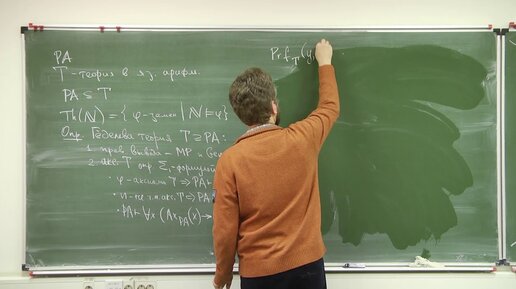 PA
T - теория в яз. арифм.
PA ⊆ T
Th(ℕ) = { φ-замкн | ℕ ⊨ φ}
Опр. Гёделева теория T ⊇ PA:
1. прав. вывода - MP и Gen
2. акс. T опр. Σ₁-формулой
• φ - аксиома T ⇒ PA ⊢
• n - не г.н. акс. T ⇒ PA
• PA ⊢ ∀x (Ax_PA(x) →
Prf_T(y